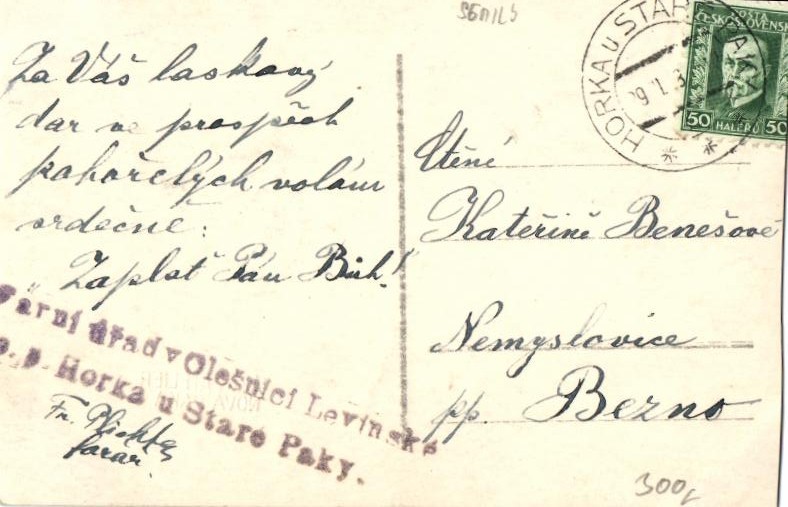 SEMILY
Za Váš laskavý
dar ve prospěch
pohořelých volám
srdečné:
„Zaplať Pán Bůh!
Farní úřad v Olešnici Levínské
p. p. Horka u Staré Paky.
Fr.
farář.
HORKA U STAR PAKY
9 I. 3
POŠTA
ČESKOSLOVENSK
50 HALÉŘŮ 50
Ctěné
Kateřině Benešové
Nemyslovice
pp. Bezno
300,